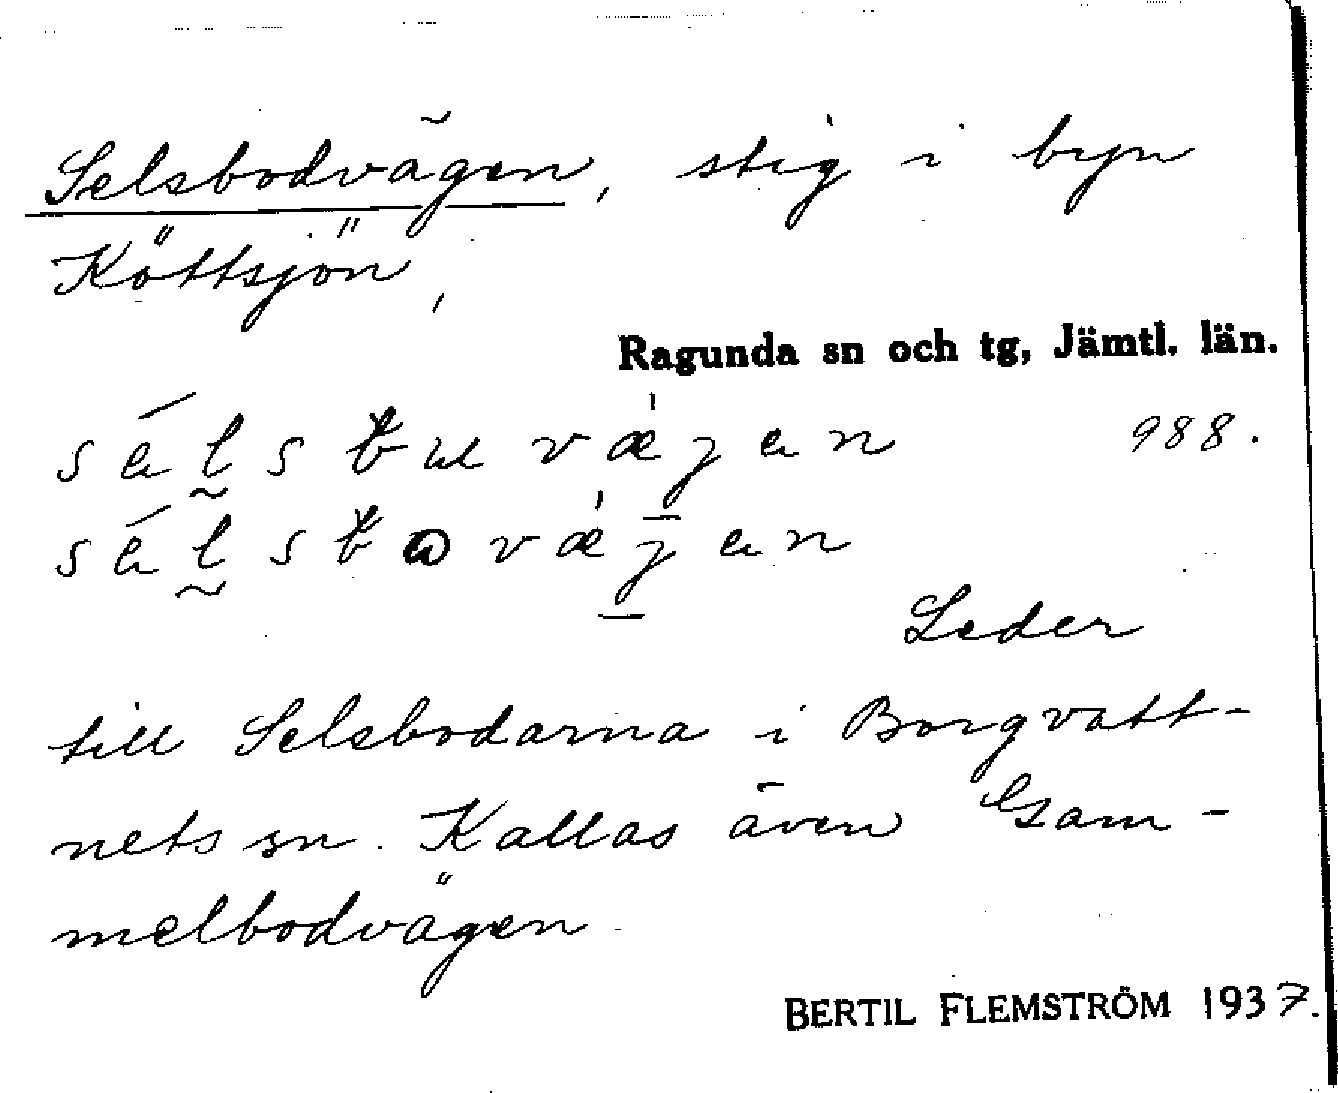 Selsbodvägen, stig i byn
Köttsjön,
Ragunda sn och tg, Jämtl. län.
988.
Leder
till Selsbodarna i Borgvatt-
nets sn. Kallas även Gam-
melbodvägen
BERTIL FLEMSTRÖM 1937.